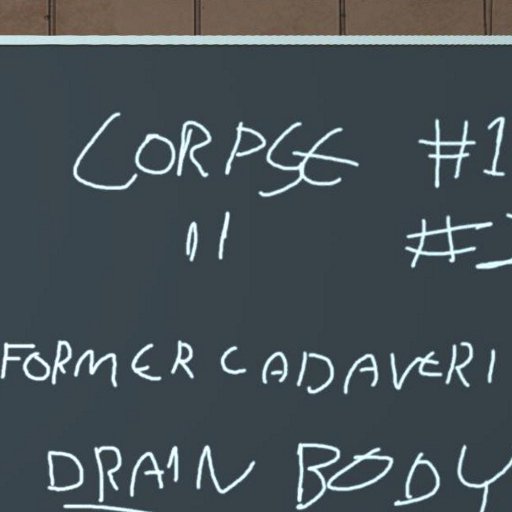 CORPSE #1
" #
FORMER CADAVERI
DRAIN BODY